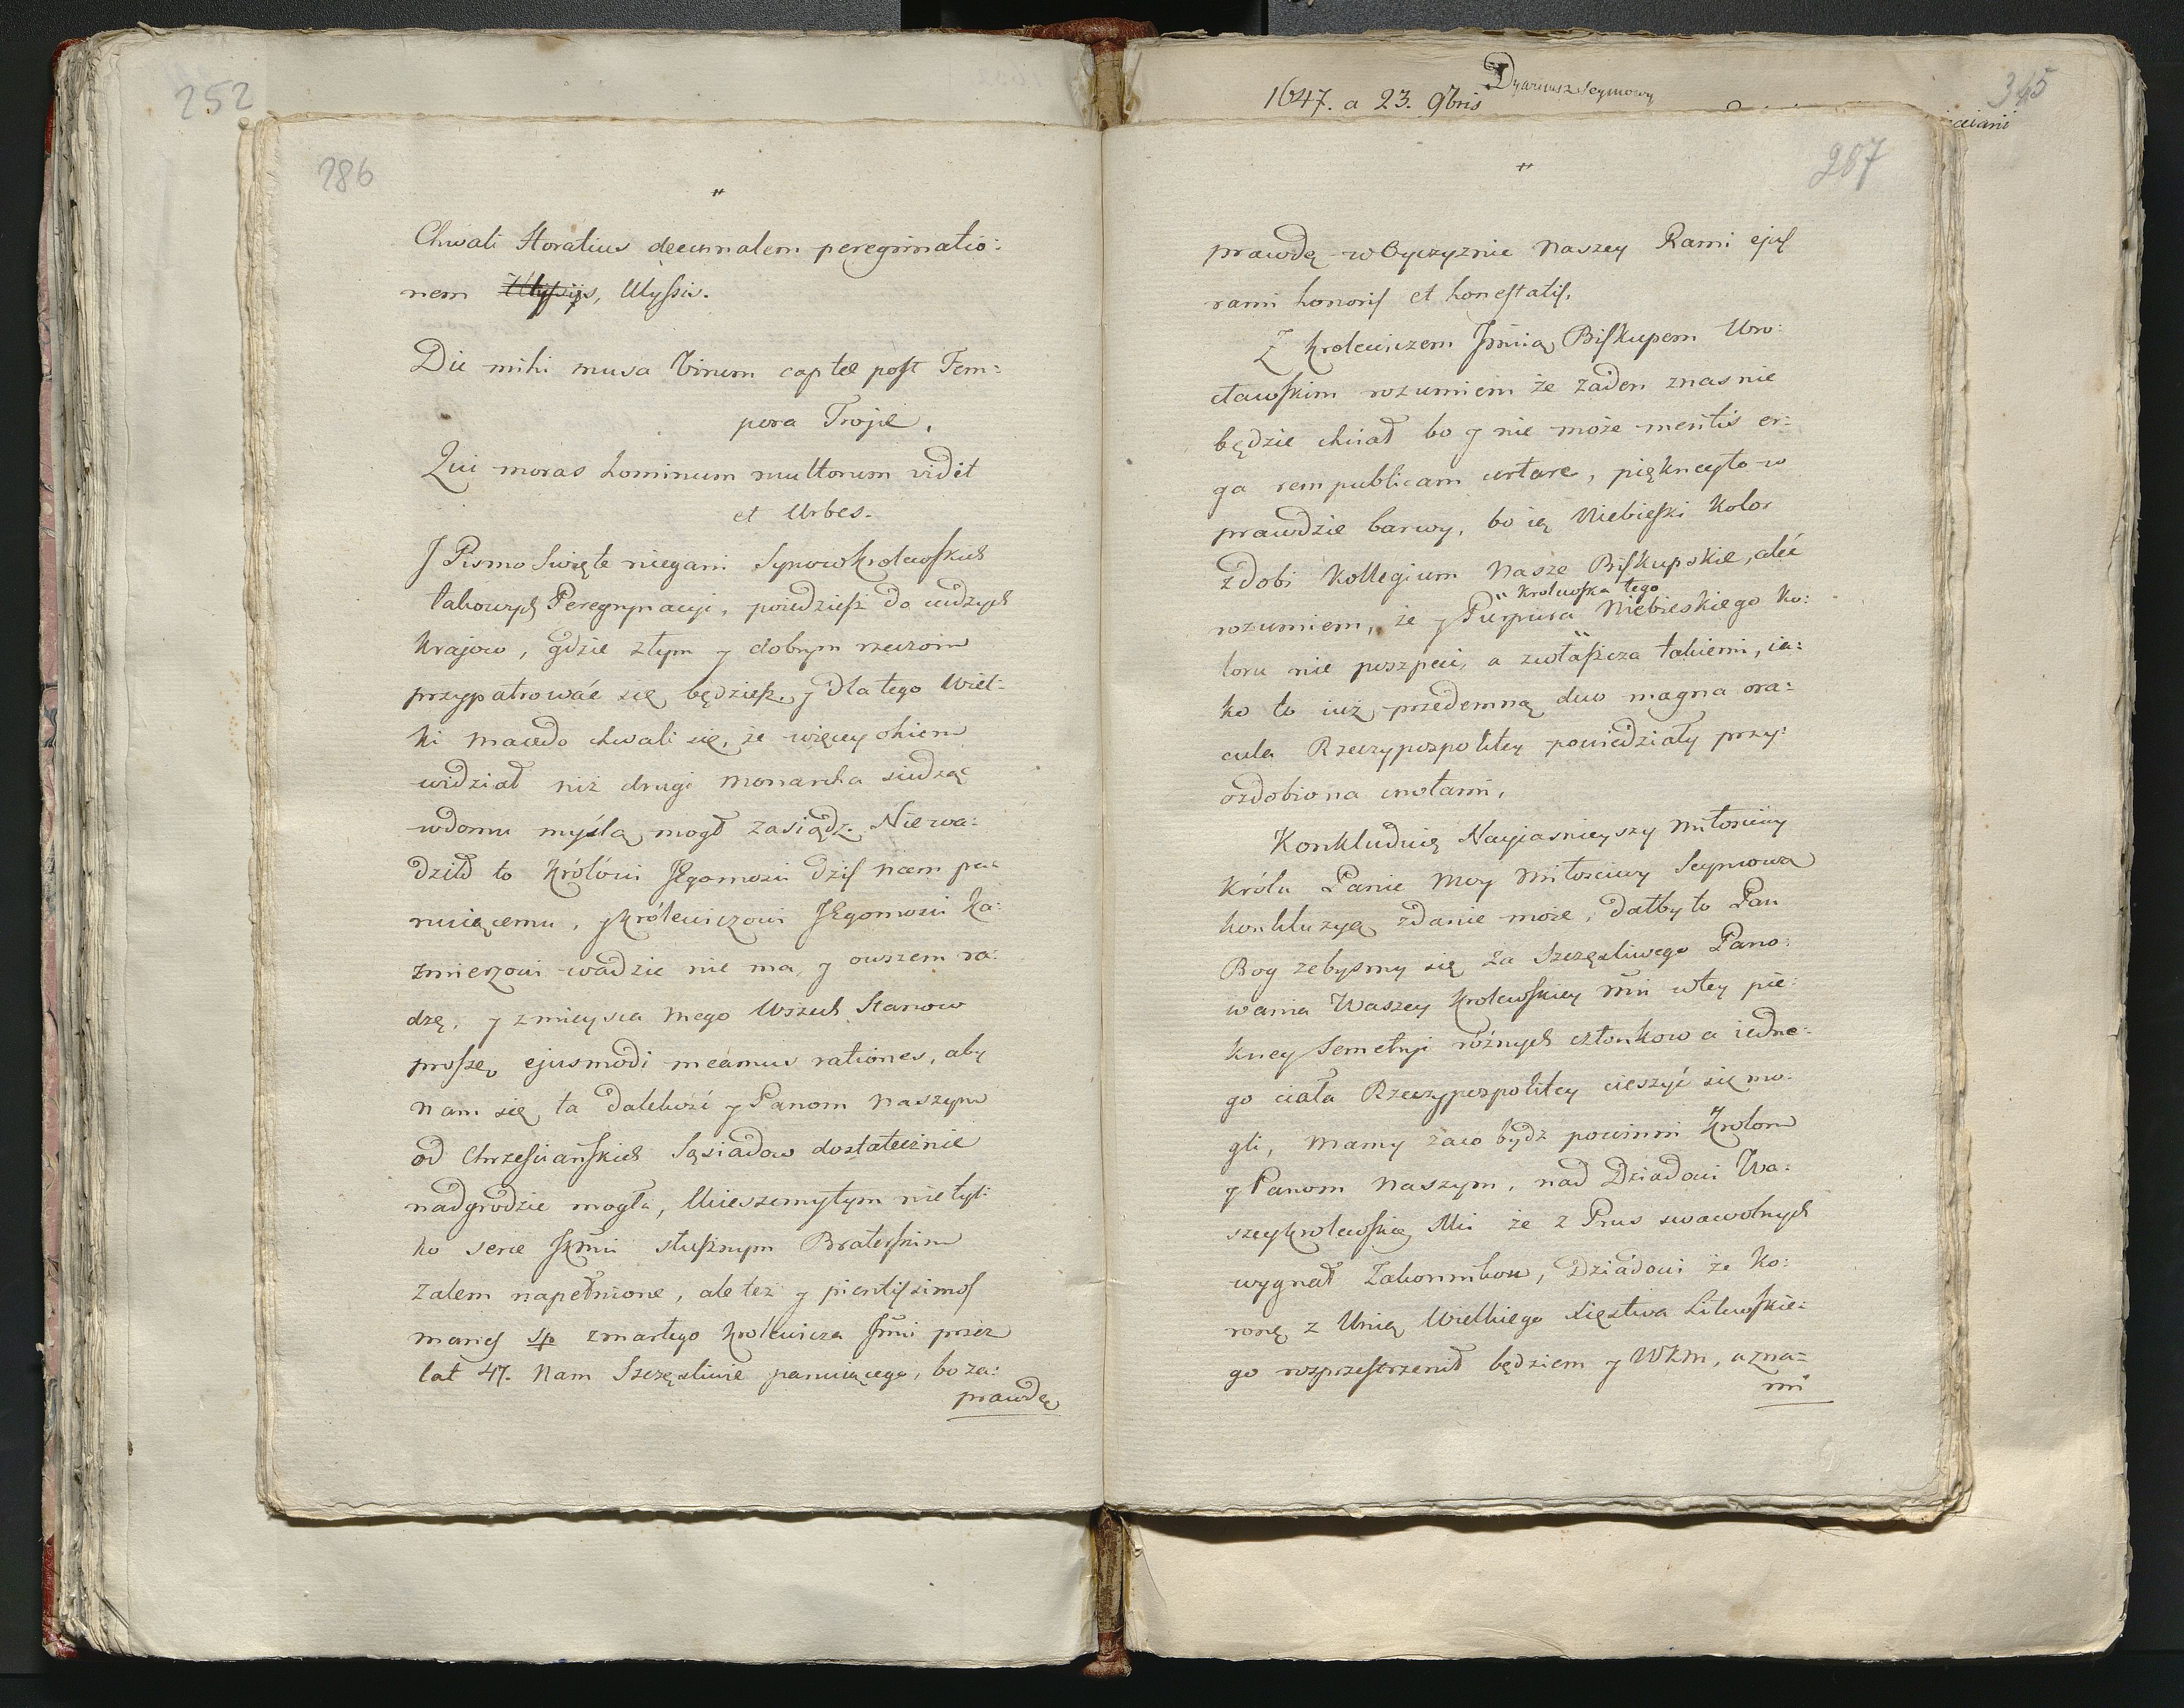 252
286
"
Chwali Horatius decennalem peregrinatio:
nem Ulyssis.
Dic mihi musa Virum captæ post Tem:
pora Trojæ.
Qui moras hominum multorum vidit
et Urbes.
J Pismo Swięte niegani Synow Krolewskich
takowych Peregrynacyi, poydziesz do cudzych
krajow, gdzie złym y dobrym rzeczom
przypatrować się będziesz, y dla tego Wiel:
ki Macedo chwali się, że więcey okiem
widział niż drugi Monarcha siedząc
wdomu myslą mogł zasiądz. Niewa:
dziło to Królowi JEgomosci dzis nam pa:
nuiącemu, y Królewiczowi JEgomosci Ka:
zmierzowi wadzic nie ma, y owszem ra:
dzę, y zmieysca mego Wszech Stanow
proszę, ejusmodi ineamus rationes, aby
nam się ta dalekość y Panom naszym
od Chrzesciańskich Sąsiadow dostatecznie
nadgrodzic mogła, Ucieszemytym nie tyl:
ko serce JKMci słusznym Braterskim
Zalem napełnione, ale też y pientissimos
manes sp zmarłego Krolewicza Jmci przez
lat 47. Nam Szczęsliwie panuiącego, bo za:
prawdę
1647. a 23. 9bris
Dyariusz Seymowy
345
287
"
prawdę w Oyczyznie Naszey Rami ejus
rami honoris et honestatis.
Z Krolewiczem Jmcią Biskupem Wro:
cławskim rozumiem że żaden znas nie
będzie chciał bo y nie może meritis er:
ga rempublicam certare, pięknieyto w
prawdzie barwy, bo ią Niebieski Kolor
zdobi Kollegium Nasze Biskupskie, aleć
" Krolewska tego
rozumiem, że y Purpura Niebieskiego ko:
loru nie poszpeci, a zwłaszcza takiemi, ia:
ko to iuż przedemną duo magna ora:
cula Rzeczypospolitey powiedziały przy:
ozdobiona cnotami.
Konkluduię Nayiasnieyszy Miłosciwy
Królu Panie Moy Miłosciwy Seymową
konkluzyą zdanie moie, dałby to Pan
Bog zebysmy się za Szczęsliwego Pano:
wania Waszey Krolewskiey Mci wtey pię:
kney Semetryi różnych członkow a iedne:
go ciała Rzeczypospolitey cieszyć się mo:
gli, Mamy zaco bydz powinni Krolom
y Panom Naszym, nad Dziadowi Wa:
szeykrolewskiey Mci że z Prus swawolnych
wygnał Zakonnikow, Dziadowi że Ko:
ronę z Unią Wielkiego Xięztwa Litewskie:
go rozprzestrzenił będziem y WKM, azna:
mi